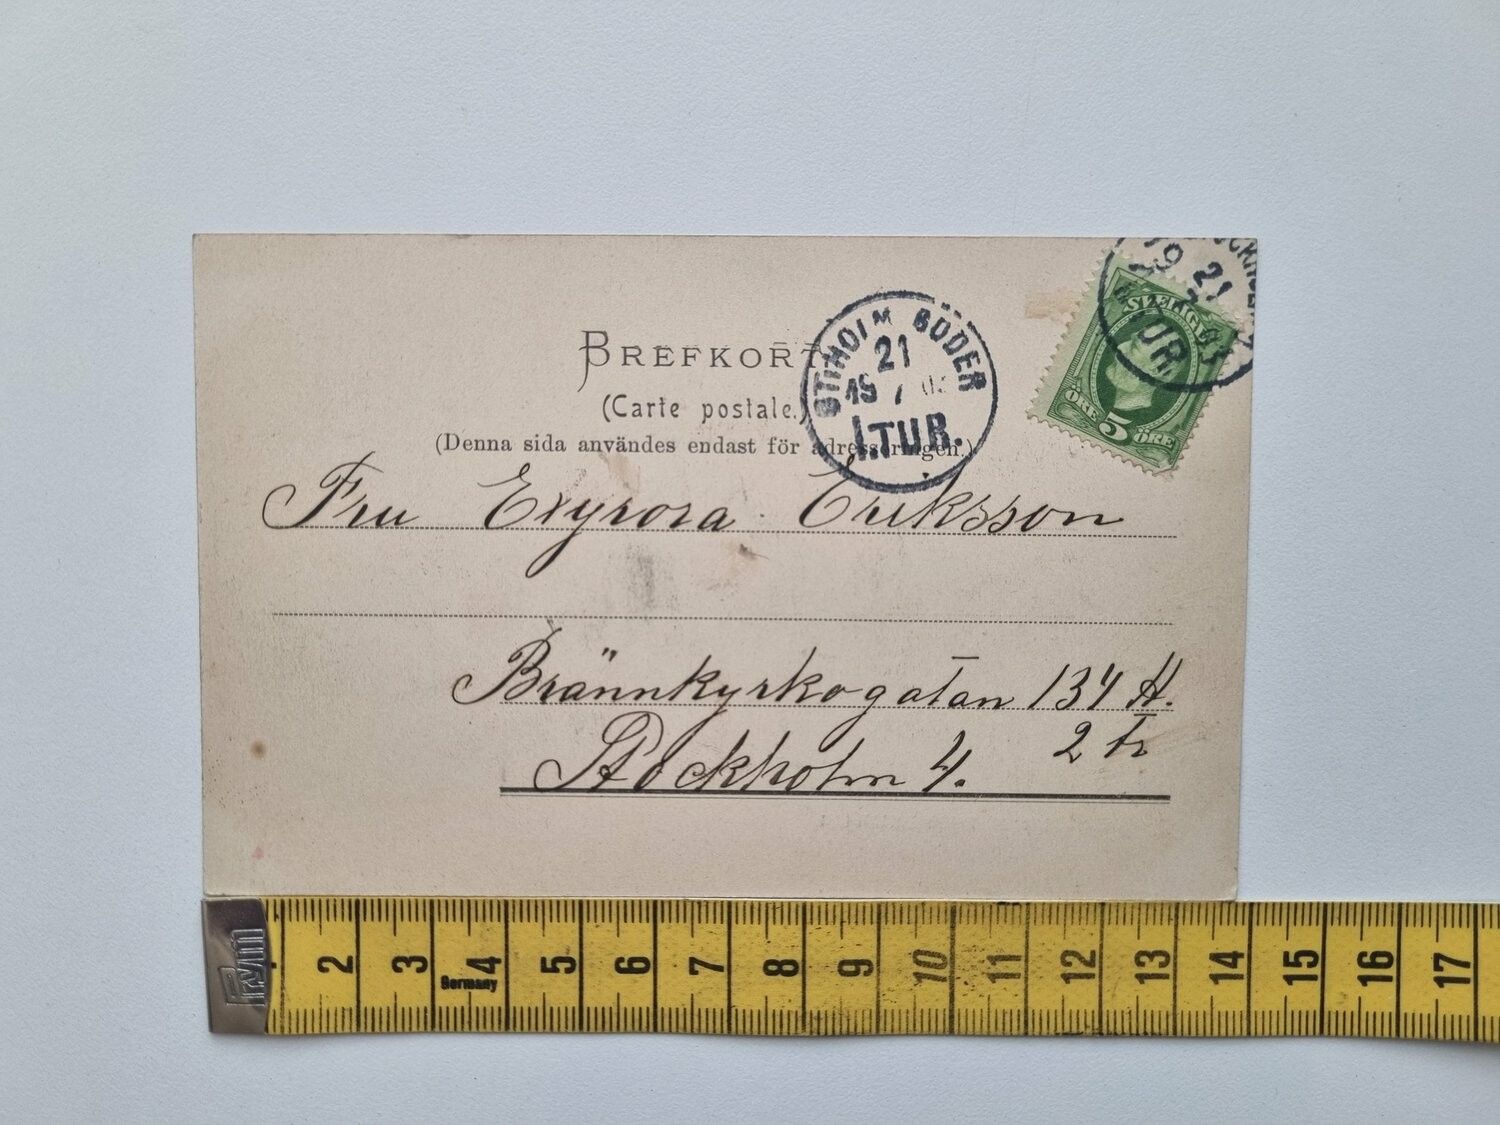 BREFKORT
(Carte postale.)
(Denna sida användes endast för adresseringen.)
STHOLM SÖDER
21
19 7 03
1.TUR.
STOCKHOLM
21
TUR.
SVERIGE
ÖRE 5 ÖRE
Fru Eriksson
Brännkyrkogatan 134 H.
2 tr
Stockholm 4.
2 3 4 5 6 7 8 9 10 11 12 13 14 15 16 17
Germany